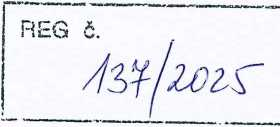 REG č.
137/2025